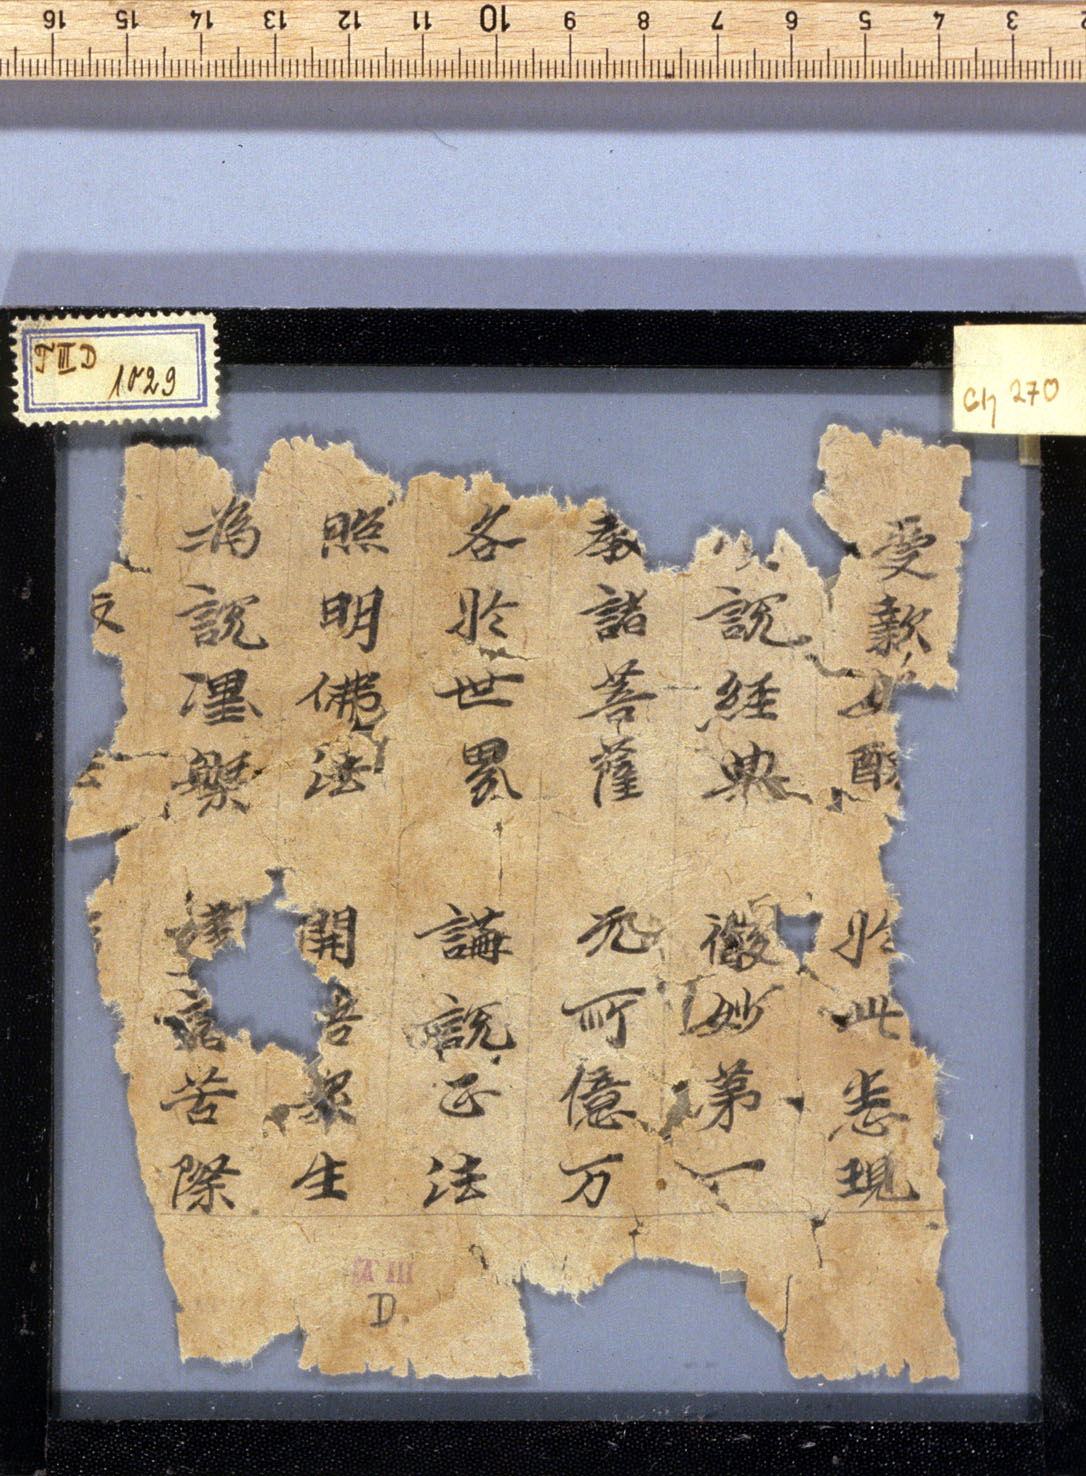 16 15 14 13 12 11 10 9 8 7 6 5 4 3 2
TIIID
1029
Ch 270
受報好醜 於此悉現
說經典 微妙苐一
教諸菩薩 无所億万
各於世界 講說正法
照明佛法 開悟衆生
為說涅槃 盡諸苦際
D.